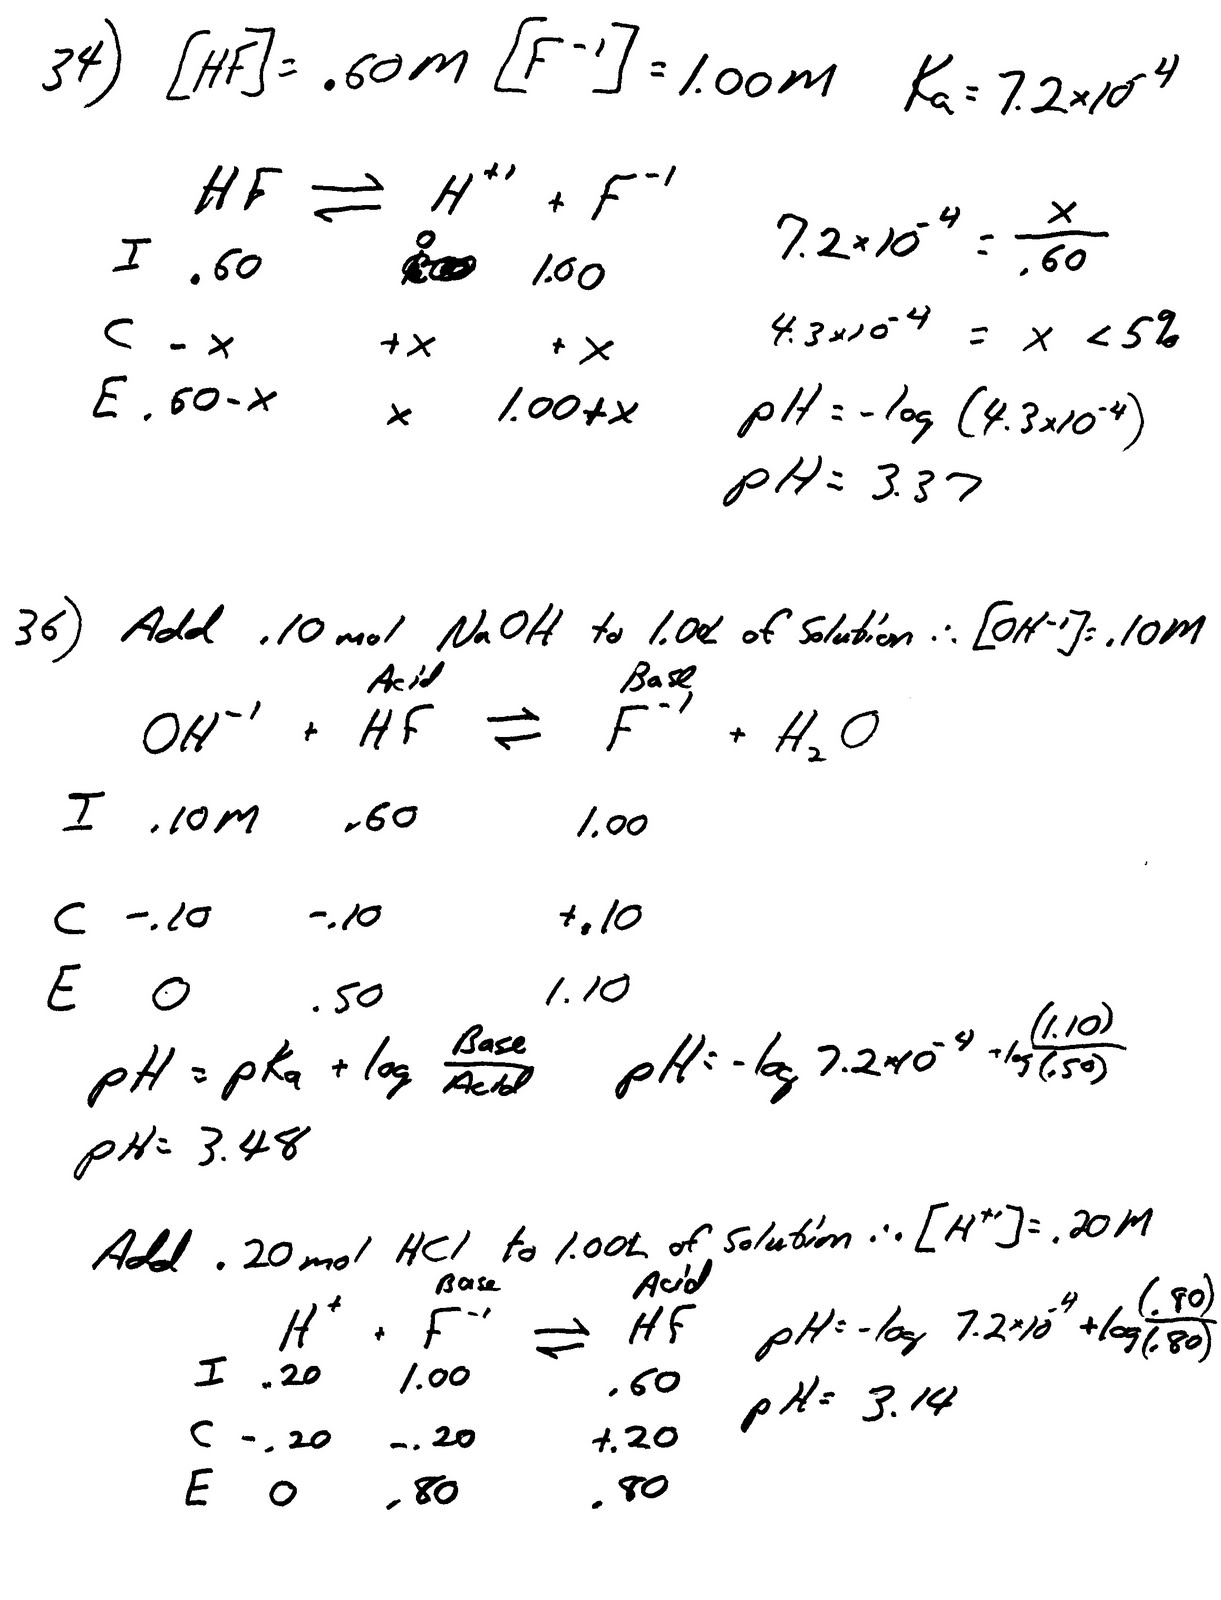 34) [HF] = .60M [F⁻¹] = 1.00M Ka = 7.2×10⁻⁴
HF ⇌ H⁺¹ + F⁻¹
I .60 0 1.00
C -x +x +x
E .60-x x 1.00+x
7.2×10⁻⁴ = x/.60
4.3×10⁻⁴ = x < 5%
pH = -log (4.3×10⁻⁴)
pH = 3.37
36) Add .10 mol NaOH to 1.0L of solution ∴ [OH⁻¹] = .10M
Acid Base
OH⁻¹ + HF ⇌ F⁻¹ + H₂O
I .10M .60 1.00
C -.10 -.10 +.10
E 0 .50 1.10
pH = pKa + log Base/Acid pH = -log 7.2×10⁻⁴ + log (1.10)/(.50)
pH = 3.48
Add .20 mol HCl to 1.00L of solution ∴ [H⁺¹] = .20M
Base Acid
H⁺ + F⁻¹ ⇌ HF
I .20 1.00 .60
C -.20 -.20 +.20
E 0 .80 .80
pH = -log 7.2×10⁻⁴ + log (.80)/(.80)
pH = 3.14